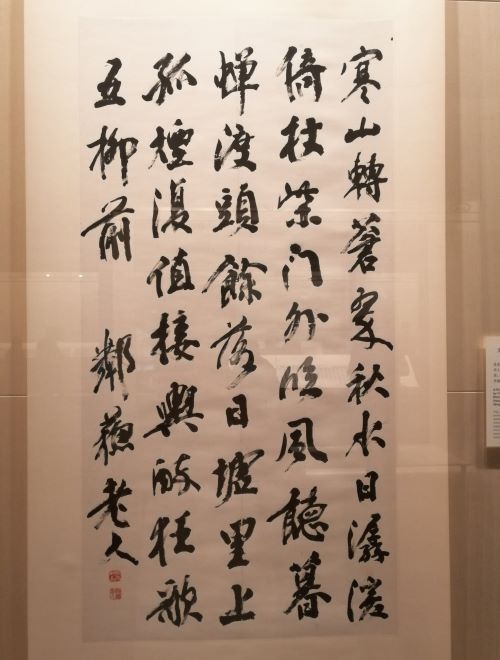 寒山轉蒼翠秋水日潺湲
倚杖柴門外臨風聽暮
蟬渡頭餘落日墟里上
孤煙復值接輿醉狂歌
五柳前 鄰蘇老人